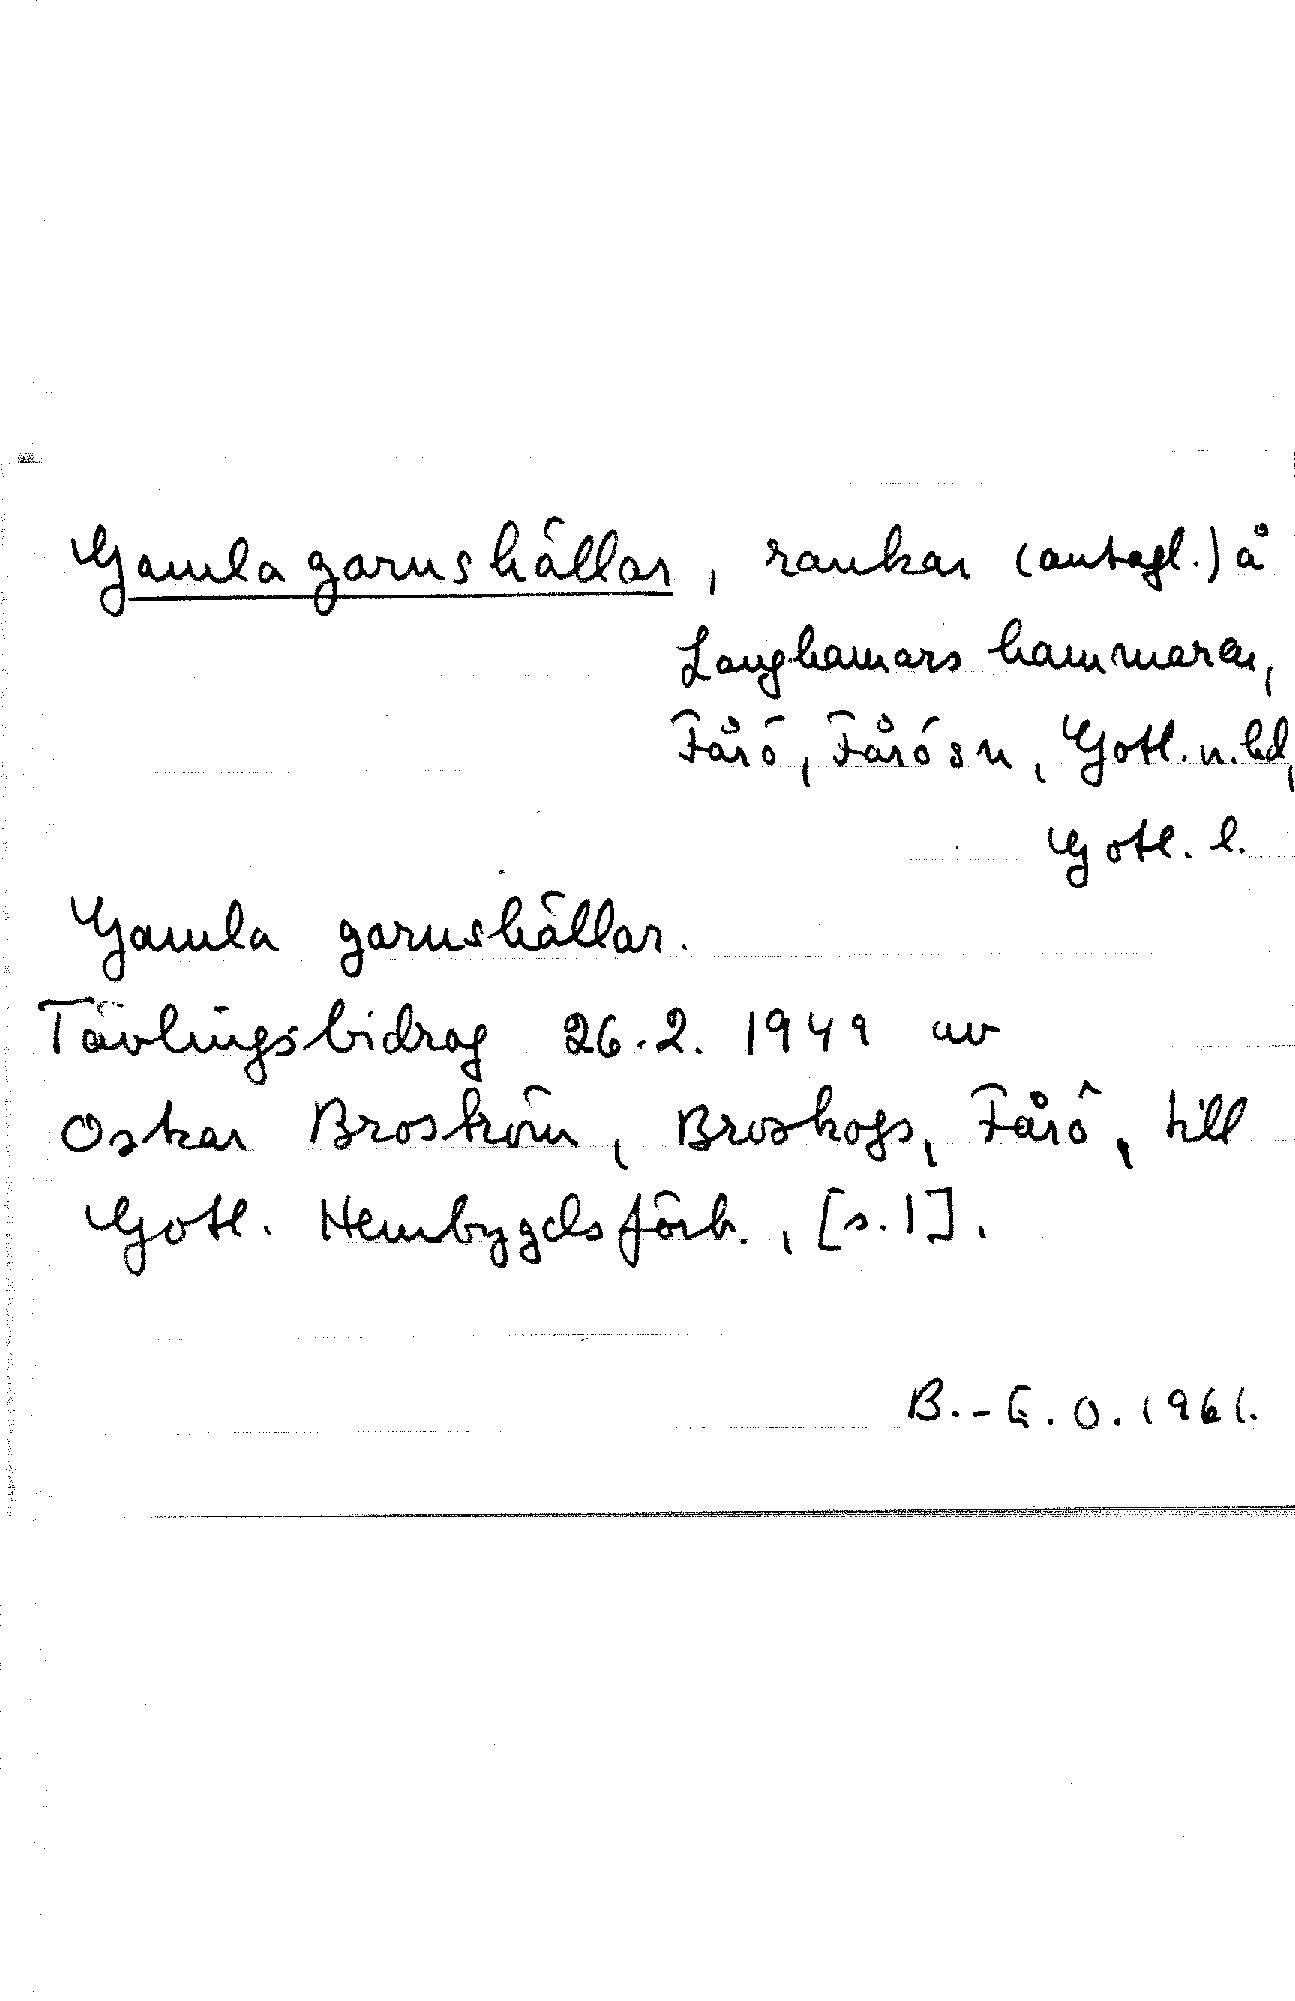 Gamla garnshällar, raukar (antagl.) å
Langhamars hammaren,
Fårö, Fårö sn, Gotl. n. hd,
Gotl. l.
Gamla garnshällar.
Tävlingsbidrag 26.2. 1949 av
Oskar Broström, Broskogs, Fårö, till
Gotl. Hembygdsförb., [s. 1].
B.-G. O. 1961.